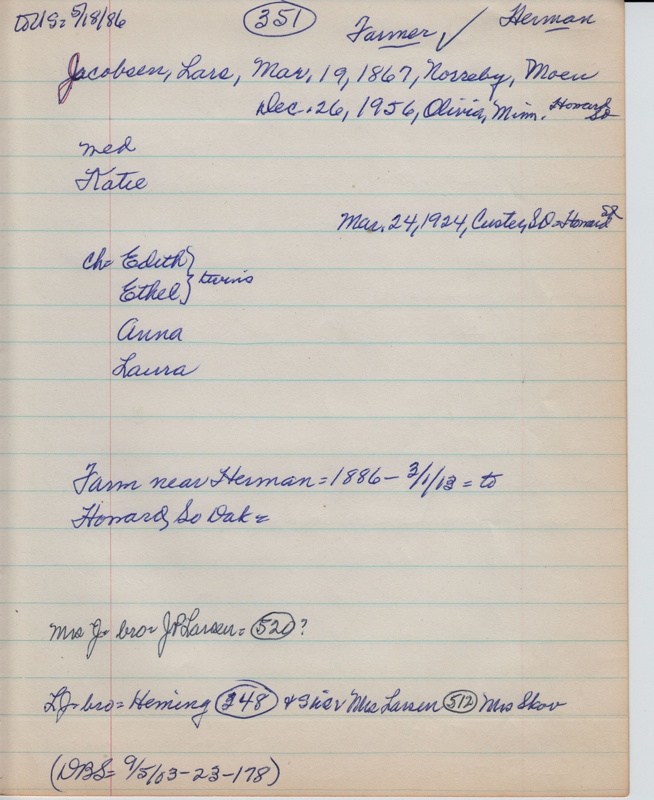 to U S = 5/18/86
351
Farmer ✓
Herman
Jacobsen, Lars, Mar, 19, 1867, Norreby, Moen
Dec. 26, 1956, Olivia, Minn. Howard SD
med
Katie
Mar. 24, 1924, Custer, SD = Howard SD
ch = Edith } twins
Ethel
Anna
Laura
Farm near Herman = 1886 - 3/1/13 = to
Howard, So Dak =
Mrs J = bro = J P Larsen = 520 ?
LJ = bro = Heming 348 + sis Mrs Larsen 512 Mrs Skov
(DBS = 9/5/03 - 23 - 178)